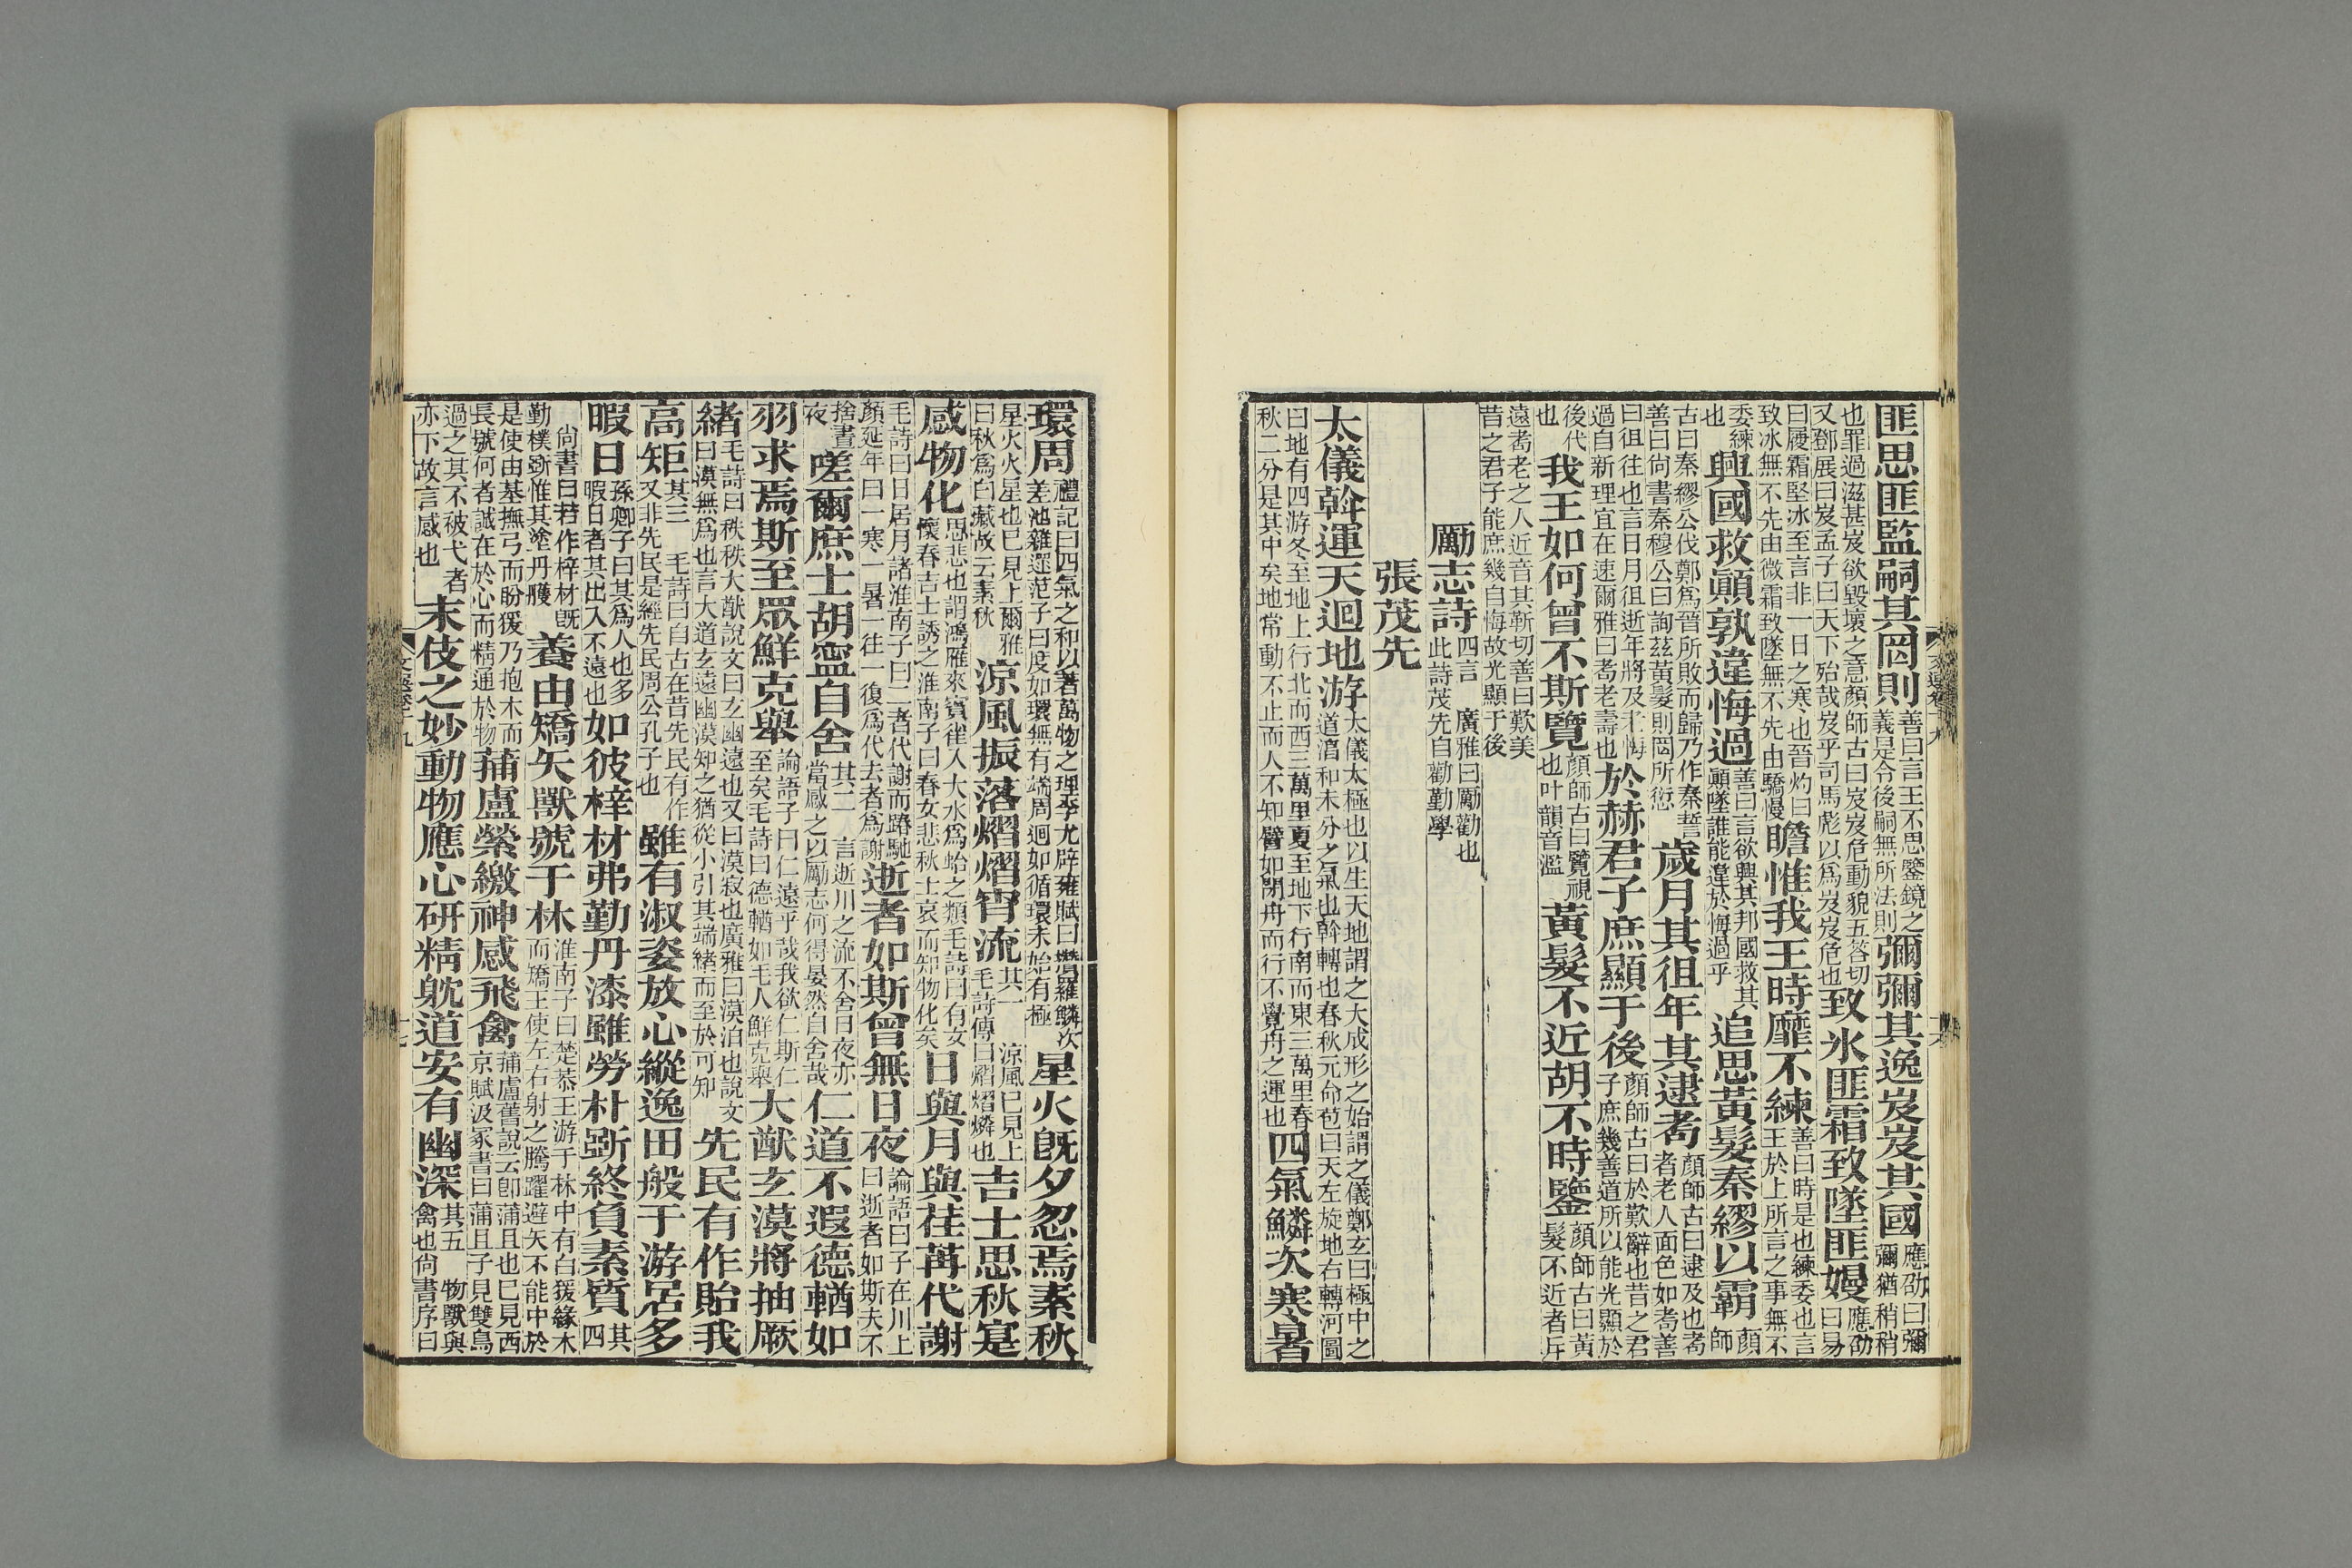 匪思匪監嗣其罔則善曰言王不思鑒鏡之義是令後嗣無所法則彌彌其逸岌岌其國應劭曰彌彌猶稍稍
也罪過滋甚岌欲毀壞之意顏師古曰岌岌危動貌五荅切又鄧展曰岌孟子曰天下殆哉岌乎司馬彪以爲岌岌危也致氷匪霜致墜匪嫚應劭曰易
曰履霜堅冰至言非一日之寒也晉灼曰致冰無不先由微霜致墜無不先由驕慢瞻惟我王時靡不練善曰時是也練委也言王於上所言之事無不
委練也興國救顚孰違悔過善曰言欲興其邦國救其顚墜誰能違於悔過乎追思黃髮秦繆以霸顏師
古曰秦繆公伐鄭爲晉所敗而歸乃作秦誓善曰尙書秦穆公曰詢茲黃髮則罔所愆歲月其徂年其逮耇顏師古曰逮及也耇者老人面色如耇善
曰徂往也言日月徂逝年將及耇悔過自新理宜在速爾雅曰耇老壽也於赫君子庶顯于後顏師古曰於歎辭也昔之君子庶幾善道所以能光顯於
後代也我王如何曾不斯覽顏師古曰覽視也叶韻音濫黃髮不近胡不時鑒顏師古曰黃髮不近者斥
遠耇老之人近音其靳切善曰歎美昔之君子能庶幾自悔故光顯于後
勵志詩四言 廣雅曰勵勸也此詩茂先自勸勤學
張茂先
太儀斡運天迴地游太儀太極也以生天地謂之大成形之始謂之儀鄭玄曰極中之道湻和未分之氣也斡轉也春秋元命苞曰天左旋地右轉河圖
曰地有四游冬至地上行北而西三萬里夏至地下行南而東三萬里春秋二分是其中矣地常動不止而人不知譬如閉舟而行不覺舟之運也四氣鱗次寒暑
環周禮記曰四氣之和以著萬物之理李尤辟雍賦曰攢羅鱗次差池雜遝范子曰度如環無有端周迴如循環未始有極星火旣夕忽焉素秋
星火火星也已見上爾雅曰秋爲白藏故云素秋涼風振落熠熠宵流其一 涼風已見上毛詩傳曰熠熠燐也吉士思秋寔
感物化思悲也謂鴻雁來賓雀入大水爲蛤之類毛詩曰有女懷春吉士誘之淮南子曰春女悲秋士哀而知物化矣日與月與荏苒代謝
毛詩曰日居月諸淮南子曰二者代謝而踳馳顏延年曰一寒一暑一往一復爲代去者爲謝逝者如斯曾無日夜論語曰子在川上曰逝者如斯夫不
捨晝夜嗟爾庶士胡寍自舍其二 言逝川之流不舍日夜亦當感之以勵志何得晏然自舍哉仁道不遐德輶如
羽求焉斯至眾鮮克舉論語子曰仁遠乎哉我欲仁斯仁至矣毛詩曰德輶如毛人鮮克舉大猷玄漠將抽厥
緒毛詩曰秩秩大猷說文曰玄幽遠也又曰漠寂也廣雅曰漠泊也說文曰漠無爲也言大道玄遠幽漠知之猶從小引其端緒而至於可知先民有作貽我
高矩其三 毛詩曰自古在昔先民有作又非先民是經先民周公孔子也雖有淑姿放心縱逸田般于游居多
暇日孫卿子曰其爲人也多暇日者其出入不遠也如彼梓材弗勤丹漆雖勞朴斲終負素質其四
尙書曰若作梓材旣勤樸斲惟其塗丹雘養由矯矢獸號于林淮南子曰楚恭王游于林中有白猨緣木而矯王使左右射之騰躍避矢不能中於
是使由基撫弓而盼猨乃抱木而長號何者誠在於心而精通於物蒱盧縈繳神感飛禽蒱盧舊說云卽蒲且也已見西京賦汲冢書曰蒲且子見雙鳥
過之其不被弋者亦下故言感也末伎之妙動物應心硏精躭道安有幽深其五 物獸與禽也尙書序曰